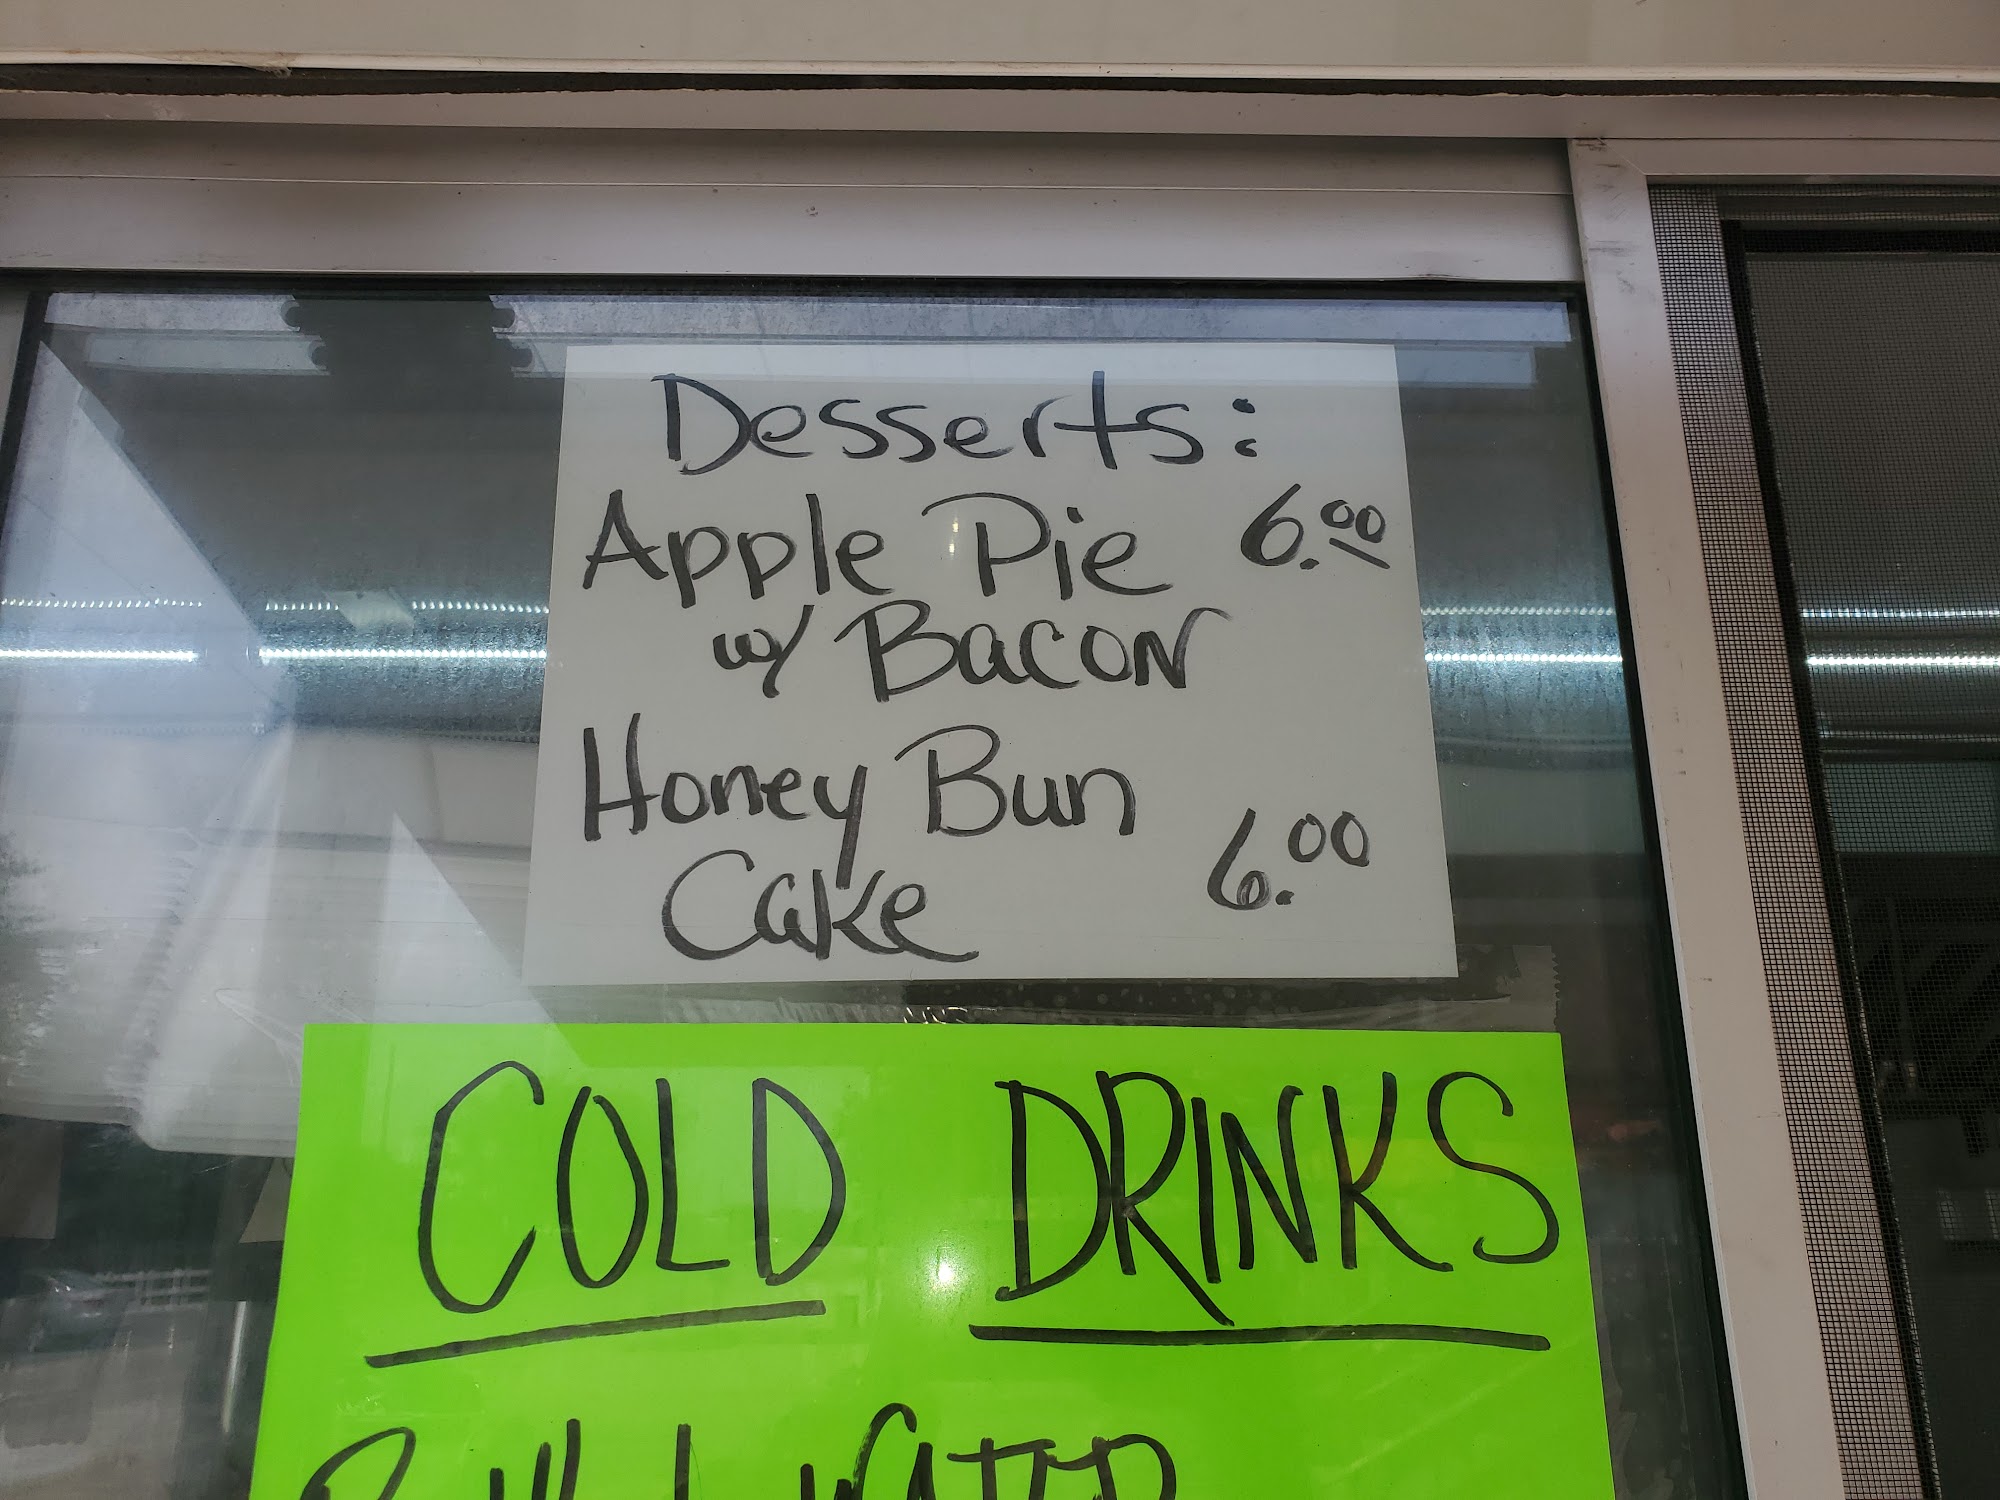 Desserts:
Apple Pie 6.00
w/ Bacon
Honey Bun
Cake 6.00
COLD DRINKS
WATER